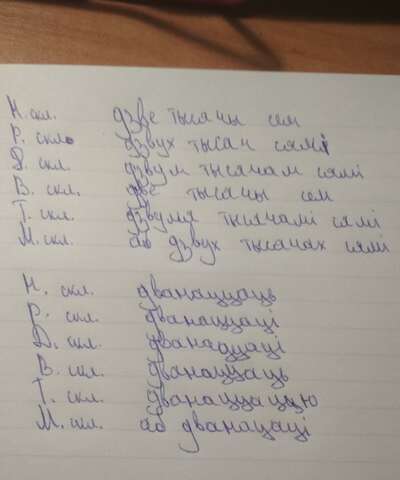 Н. скл. дзве тысячы сем
Р. скл. дзвух тысяч сямі
Д. скл. дзвум тысячам сямі
В. скл. дзве тысячы сем
Т. скл. дзвумя тысячамі сямі
М. скл. аб дзвух тысячах сямі
Н. скл. дванаццаць
Р. скл. дванаццаці
Д. скл. дванаццаці
В. скл. дванаццаць
Т. скл. дванаццаццю
М. скл. аб дванацаці